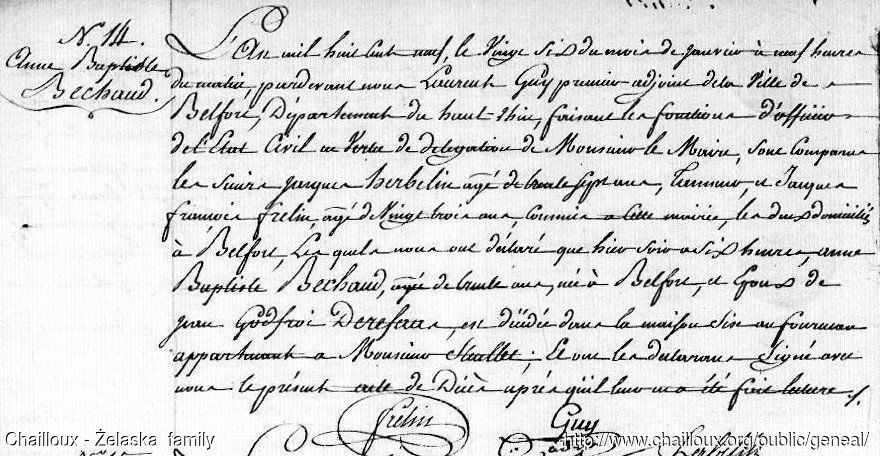 N.° 14.
Anne Baptiste
Bechaud.
L'An mil huit cent neuf, le Vingt six du mois de janvier à neuf heures
du matin, pardevant nous Laurent Guy premier adjoint de la Ville de
Belfort, Département du haut-Rhin, faisant les fonctions d'officier
de l'Etat Civil en Vertu de délégation de Monsieur le Maire, sont Comparus
les sieurs Jacques herbelin agé de trente sept ans, et Jacques
françois frelin, agé de Vingt trois ans, Commis a Cette mairie, les deux domiciliés
à Belfort, Lesquels nous ont déclaré que hier soir a six heures, anne
Baptiste Bechaud, agée de trente ans, née à Belfort, et Epouse de
jean Godfroi est décédée dans la maison size au fourneau
appartenant a Monsieur ; Et ont les déclarans signé avec
nous le présent acte de Décès après qu'il leur en a été fait lecture ./.
frelin Guy
Chailloux - Želaska family http://www.chailloux.org/public/geneal/